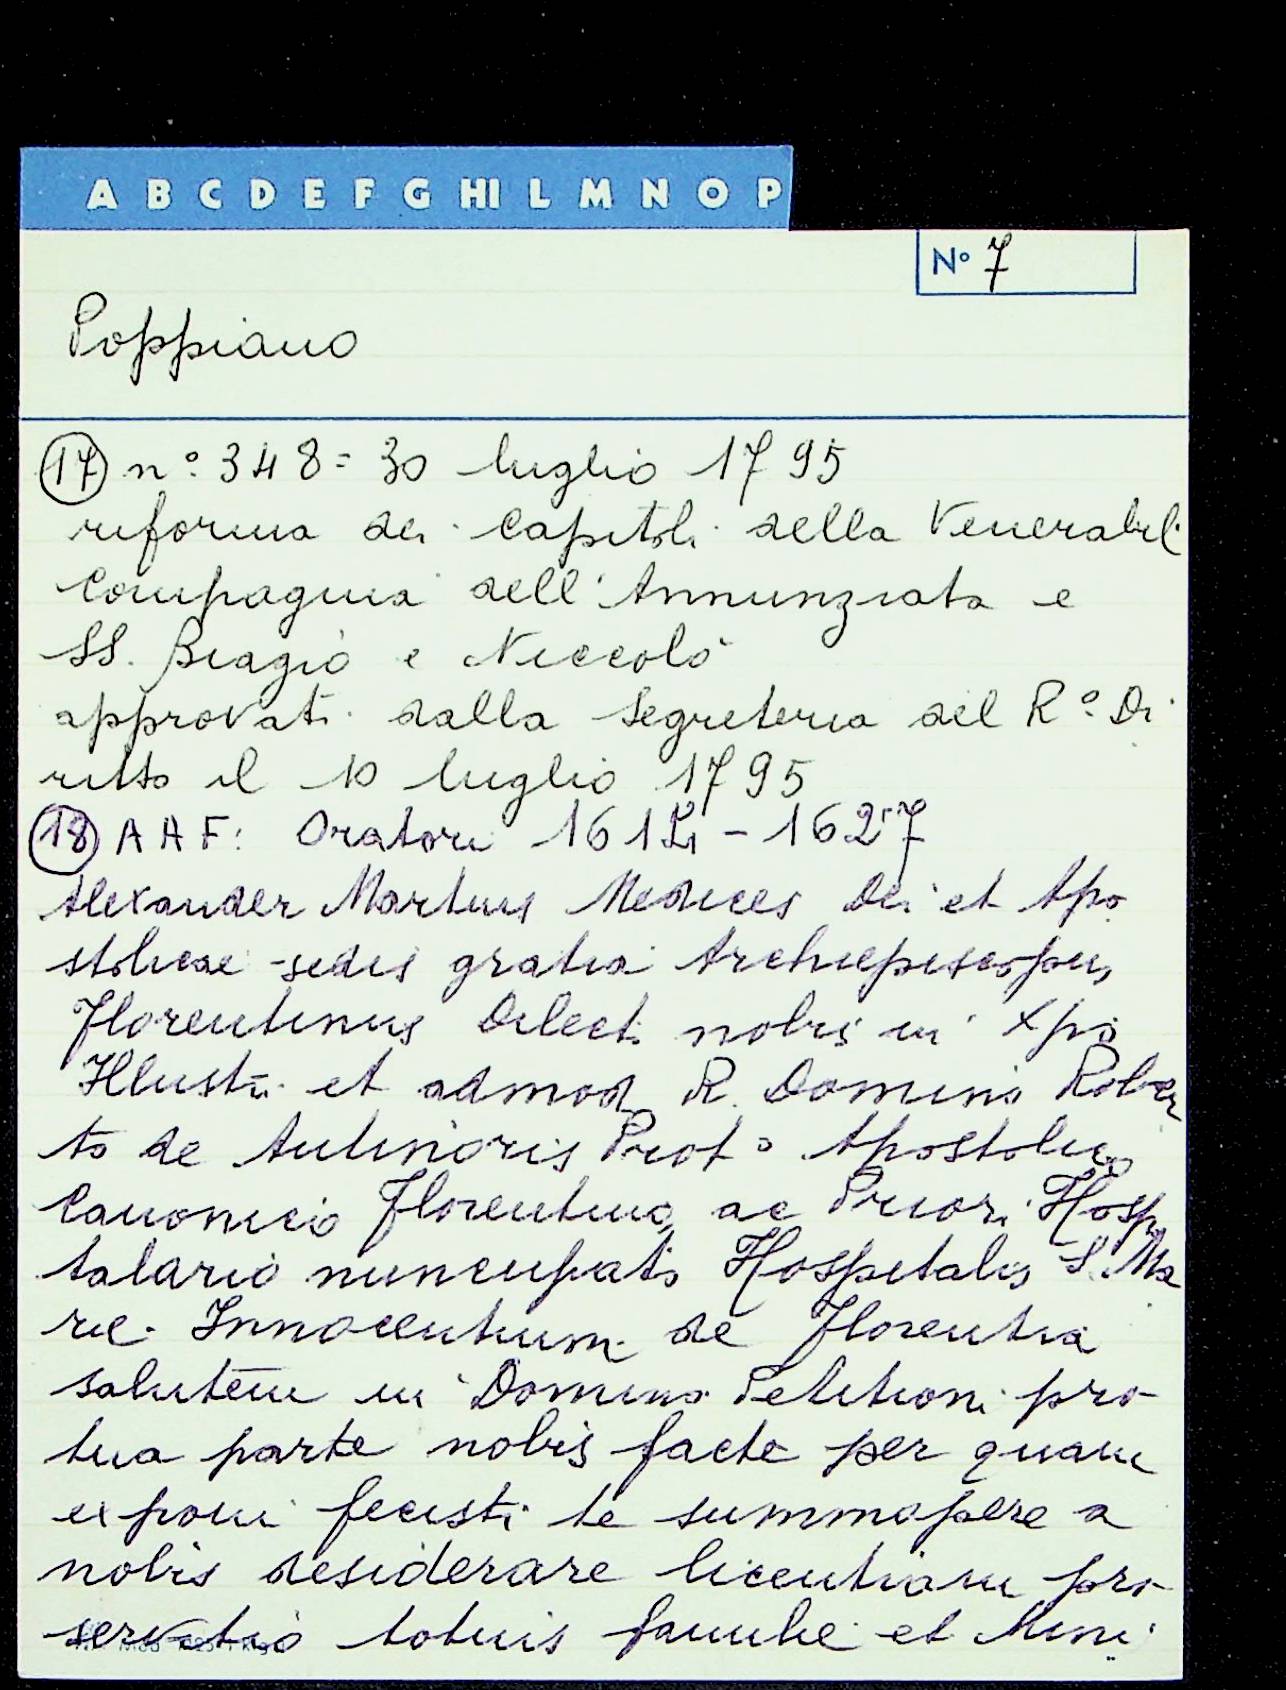 A B C D E F G HI L M N O P
N° 7
Poppiano
(17) n° 348 = 30 luglio 1795
riforma dei capitoli della Venerabil
Compagnia dell'Annunziata e
SS. Biagio e Niccolò
approvati dalla Segreteria del R° Di
ritto il 10 luglio 1795
(18) AAF: Oratori 1612 - 1627
Alexander Martius Medices Dei et Apo
stolicae sedis gratia Archiepiscopus
Florentinus Dilecti nobis in Xpo
Illustri et admod R. Domino Rober
to de Antinoris Prot° Apostolico
Canonico Florentino ac Priori Hospi
talario nuncupato Hospitalis S. Ma
rie Innocentium de Florentia
salutem in Domino Petitioni pro
tua parte nobis facte per quam
exponi fecisti te summopere a
nobis desiderare licentiam pro
servitio totius familie et Mini